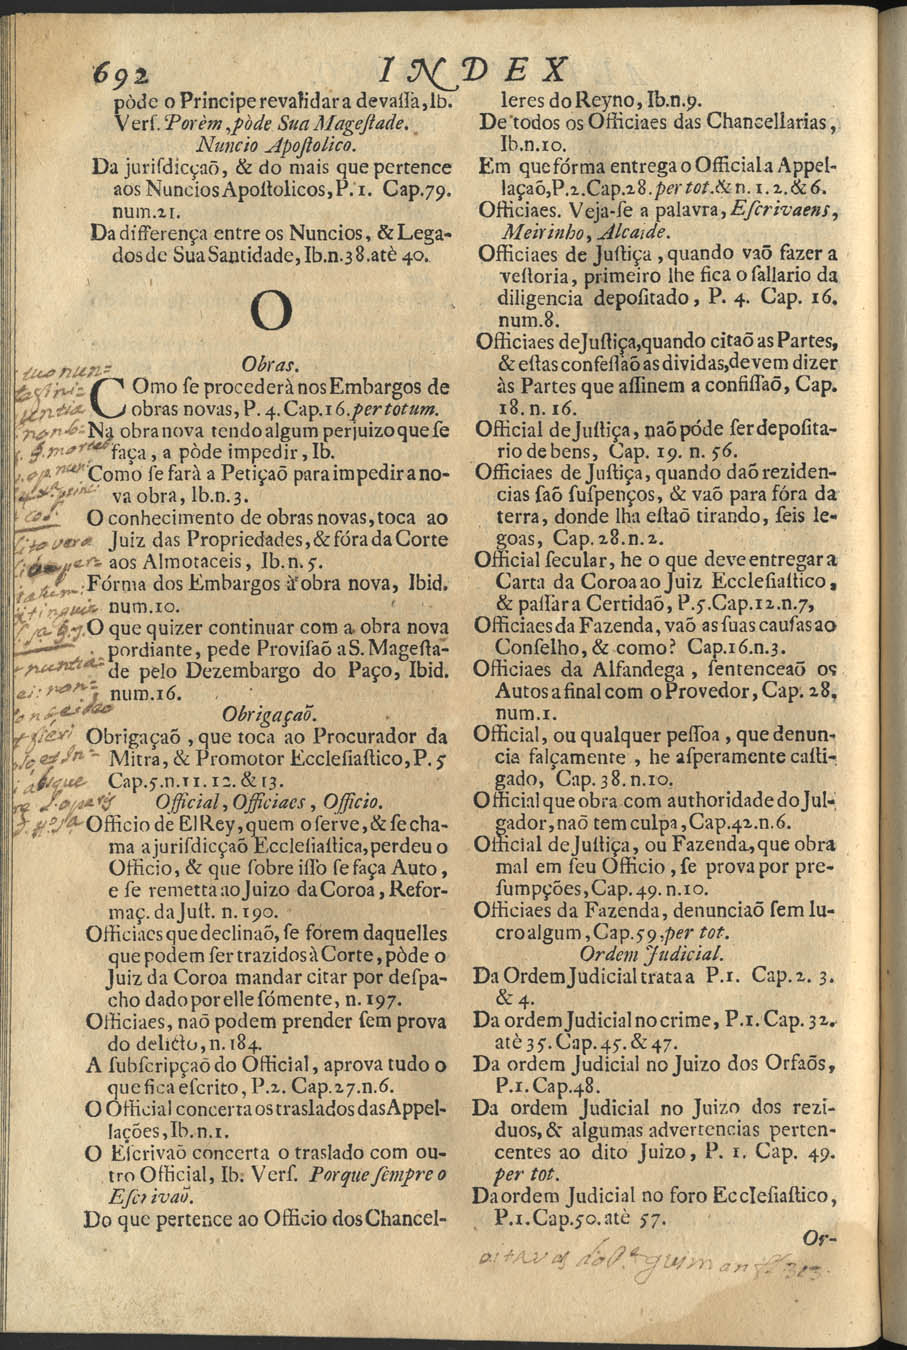 692 INDEX
pòde o Principe revalidar a devaſſa, Ib.
Verſ. Porèm, pòde Sua Mageſtade.
Nuncio Apoſtolico.
Da juriſdicçaõ, & do mais que pertence
aos Nuncios Apoſtolicos, P. 1. Cap. 79.
num. 21.
Da differença entre os Nuncios, & Lega-
dos de Sua Santidade, Ib. n. 38. atè 40.
O
Obras.
COmo ſe procederà nos Embargos de
obras novas, P. 4. Cap. 16. per totum.
Na obra nova tendo algum perjuizo que ſe
faça, a pòde impedir, Ib.
Como ſe farà a Petiçaõ para impedir a no-
va obra, Ib. n. 3.
O conhecimento de obras novas, toca ao
Juiz das Propriedades, & fóra da Corte
aos Almotaceis, Ib. n. 5.
Fórma dos Embargos à obra nova, Ibid.
num. 10.
O que quizer continuar com a obra nova
pordiante, pede Proviſaõ a S. Mageſta-
de pelo Dezembargo do Paço, Ibid.
num. 16.
Obrigaçaõ.
Obrigaçaõ, que toca ao Procurador da
Mitra, & Promotor Eccleſiaſtico, P. 5
Cap. 5. n. 11. 12. & 13.
Official, Officiaes, Officio.
Officio de ElRey, quem o ſerve, & ſe cha-
ma a juriſdicçaõ Eccleſiaſtica, perdeu o
Officio, & que ſobre iſſo ſe faça Auto,
e ſe remetta ao Juizo da Coroa, Refor-
maç. da Juſt. n. 190.
Officiaes que declinaõ, ſe forem daquelles
que podem ſer trazidos à Corte, pòde o
Juiz da Coroa mandar citar por deſpa-
cho dado por elle ſómente, n. 197.
Officiaes, naõ podem prender ſem prova
do delicto, n. 184.
A ſubſcripçaõ do Official, aprova tudo o
que fica eſcrito, P. 2. Cap. 27. n. 6.
O Official concerta os traslados das Appel-
lações, Ib. n. 1.
O Eſcrivaõ concerta o traslado com ou-
tro Official, Ib. Verſ. Porque ſempre o
Eſcrivaõ.
Do que pertence ao Officio dos Chancel-
leres do Reyno, Ib. n. 9.
De todos os Officiaes das Chancellarias,
Ib. n. 10.
Em que fórma entrega o Official a Appel-
laçaõ, P. 2. Cap. 28. per tot. & n. 1. 2. & 6.
Officiaes. Veja-ſe a palavra, Eſcrivaens,
Meirinho, Alcaide.
Officiaes de Juſtiça, quando vaõ fazer a
veſtoria, primeiro lhe fica o ſallario da
diligencia depoſitado, P. 4. Cap. 16.
num. 8.
Officiaes de Juſtiça, quando citaõ as Partes,
& eſtas confeſſaõ as dividas, devem dizer
às Partes que aſſinem a confiſſaõ, Cap.
18. n. 16.
Official de Juſtiça, naõ póde ſer depoſita-
rio de bens, Cap. 19. n. 56.
Officiaes de Juſtiça, quando daõ reziden-
cias ſaõ ſuſpenços, & vaõ para fóra da
terra, donde lha eſtaõ tirando, ſeis le-
goas, Cap. 28. n. 2.
Official ſecular, he o que deve entregar a
Carta da Coroa ao Juiz Eccleſiaſtico,
& paſſar a Certidaõ, P. 5. Cap. 12. n. 7,
Officiaes da Fazenda, vaõ as ſuas cauſas ao
Conſelho, & como? Cap. 16. n. 3.
Officiaes da Alfandega, ſentenceaõ os
Autos a final com o Provedor, Cap. 28.
num. 1.
Official, ou qualquer peſſoa, que denun-
cia falçamente, he aſperamente caſti-
gado, Cap. 38. n. 10.
Official que obra com authoridade do Jul-
gador, naõ tem culpa, Cap. 42. n. 6.
Official de Juſtiça, ou Fazenda, que obra
mal em ſeu Officio, ſe prova por pre-
ſumpções, Cap. 49. n. 10.
Officiaes da Fazenda, denunciaõ ſem lu-
cro algum, Cap. 59. per tot.
Ordem Judicial.
Da Ordem Judicial trata a P. 1. Cap. 2. 3.
& 4.
Da ordem Judicial no crime, P. 1. Cap. 32.
atè 35. Cap. 45. & 47.
Da ordem Judicial no Juizo dos Orfaõs,
P. 1. Cap. 48.
Da ordem Judicial no Juizo dos rezi-
duos, & algumas advertencias perten-
centes ao dito Juizo, P. 1. Cap. 49.
per tot.
Da ordem Judicial no foro Eccleſiaſtico,
P. 1. Cap. 50. atè 57.
Or-